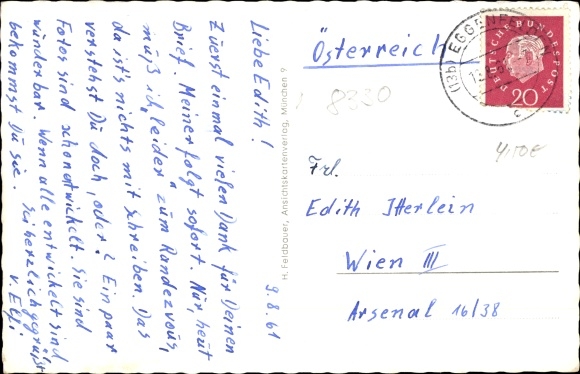 9.8.61
Liebe Edith!
Zuerst einmal vielen Dank für Deinen
Brief. Meiner folgt sofort. Nur, heut
muß ich „leider“ zum Randezvous,
da ist's nichts mit schreiben. Das
verstehst Du doch, oder? Ein paar
Fotos sind schon entwickelt. Sie sind
wunderbar. Wenn alle entwickelt sind
bekommst Du sie. Sei herzlich gegrüßt
v. Elfi
H. Feldbauer, Ansichtskartenverlag, München 9
Österreich
8320
DEUTSCHE BUNDESPOST
20
(13b) EGGENFELDEN
c
4,10€
Frl.
Edith Itterlein
Wien III
Arsenal 16/38